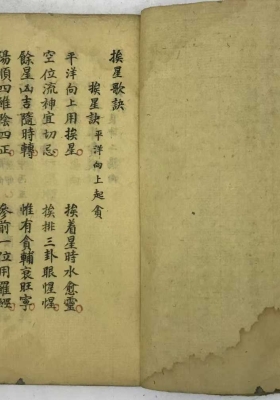 挨星歌訣
挨星訣 平洋向上起貪
平洋向上用挨星 挨着星時水愈靈
空位流神宜切忌 挨排三卦眼惺惺
餘星凶吉隨時轉 惟有貪輔衰旺寧
陽順四維陰四正 參前一位用羅經